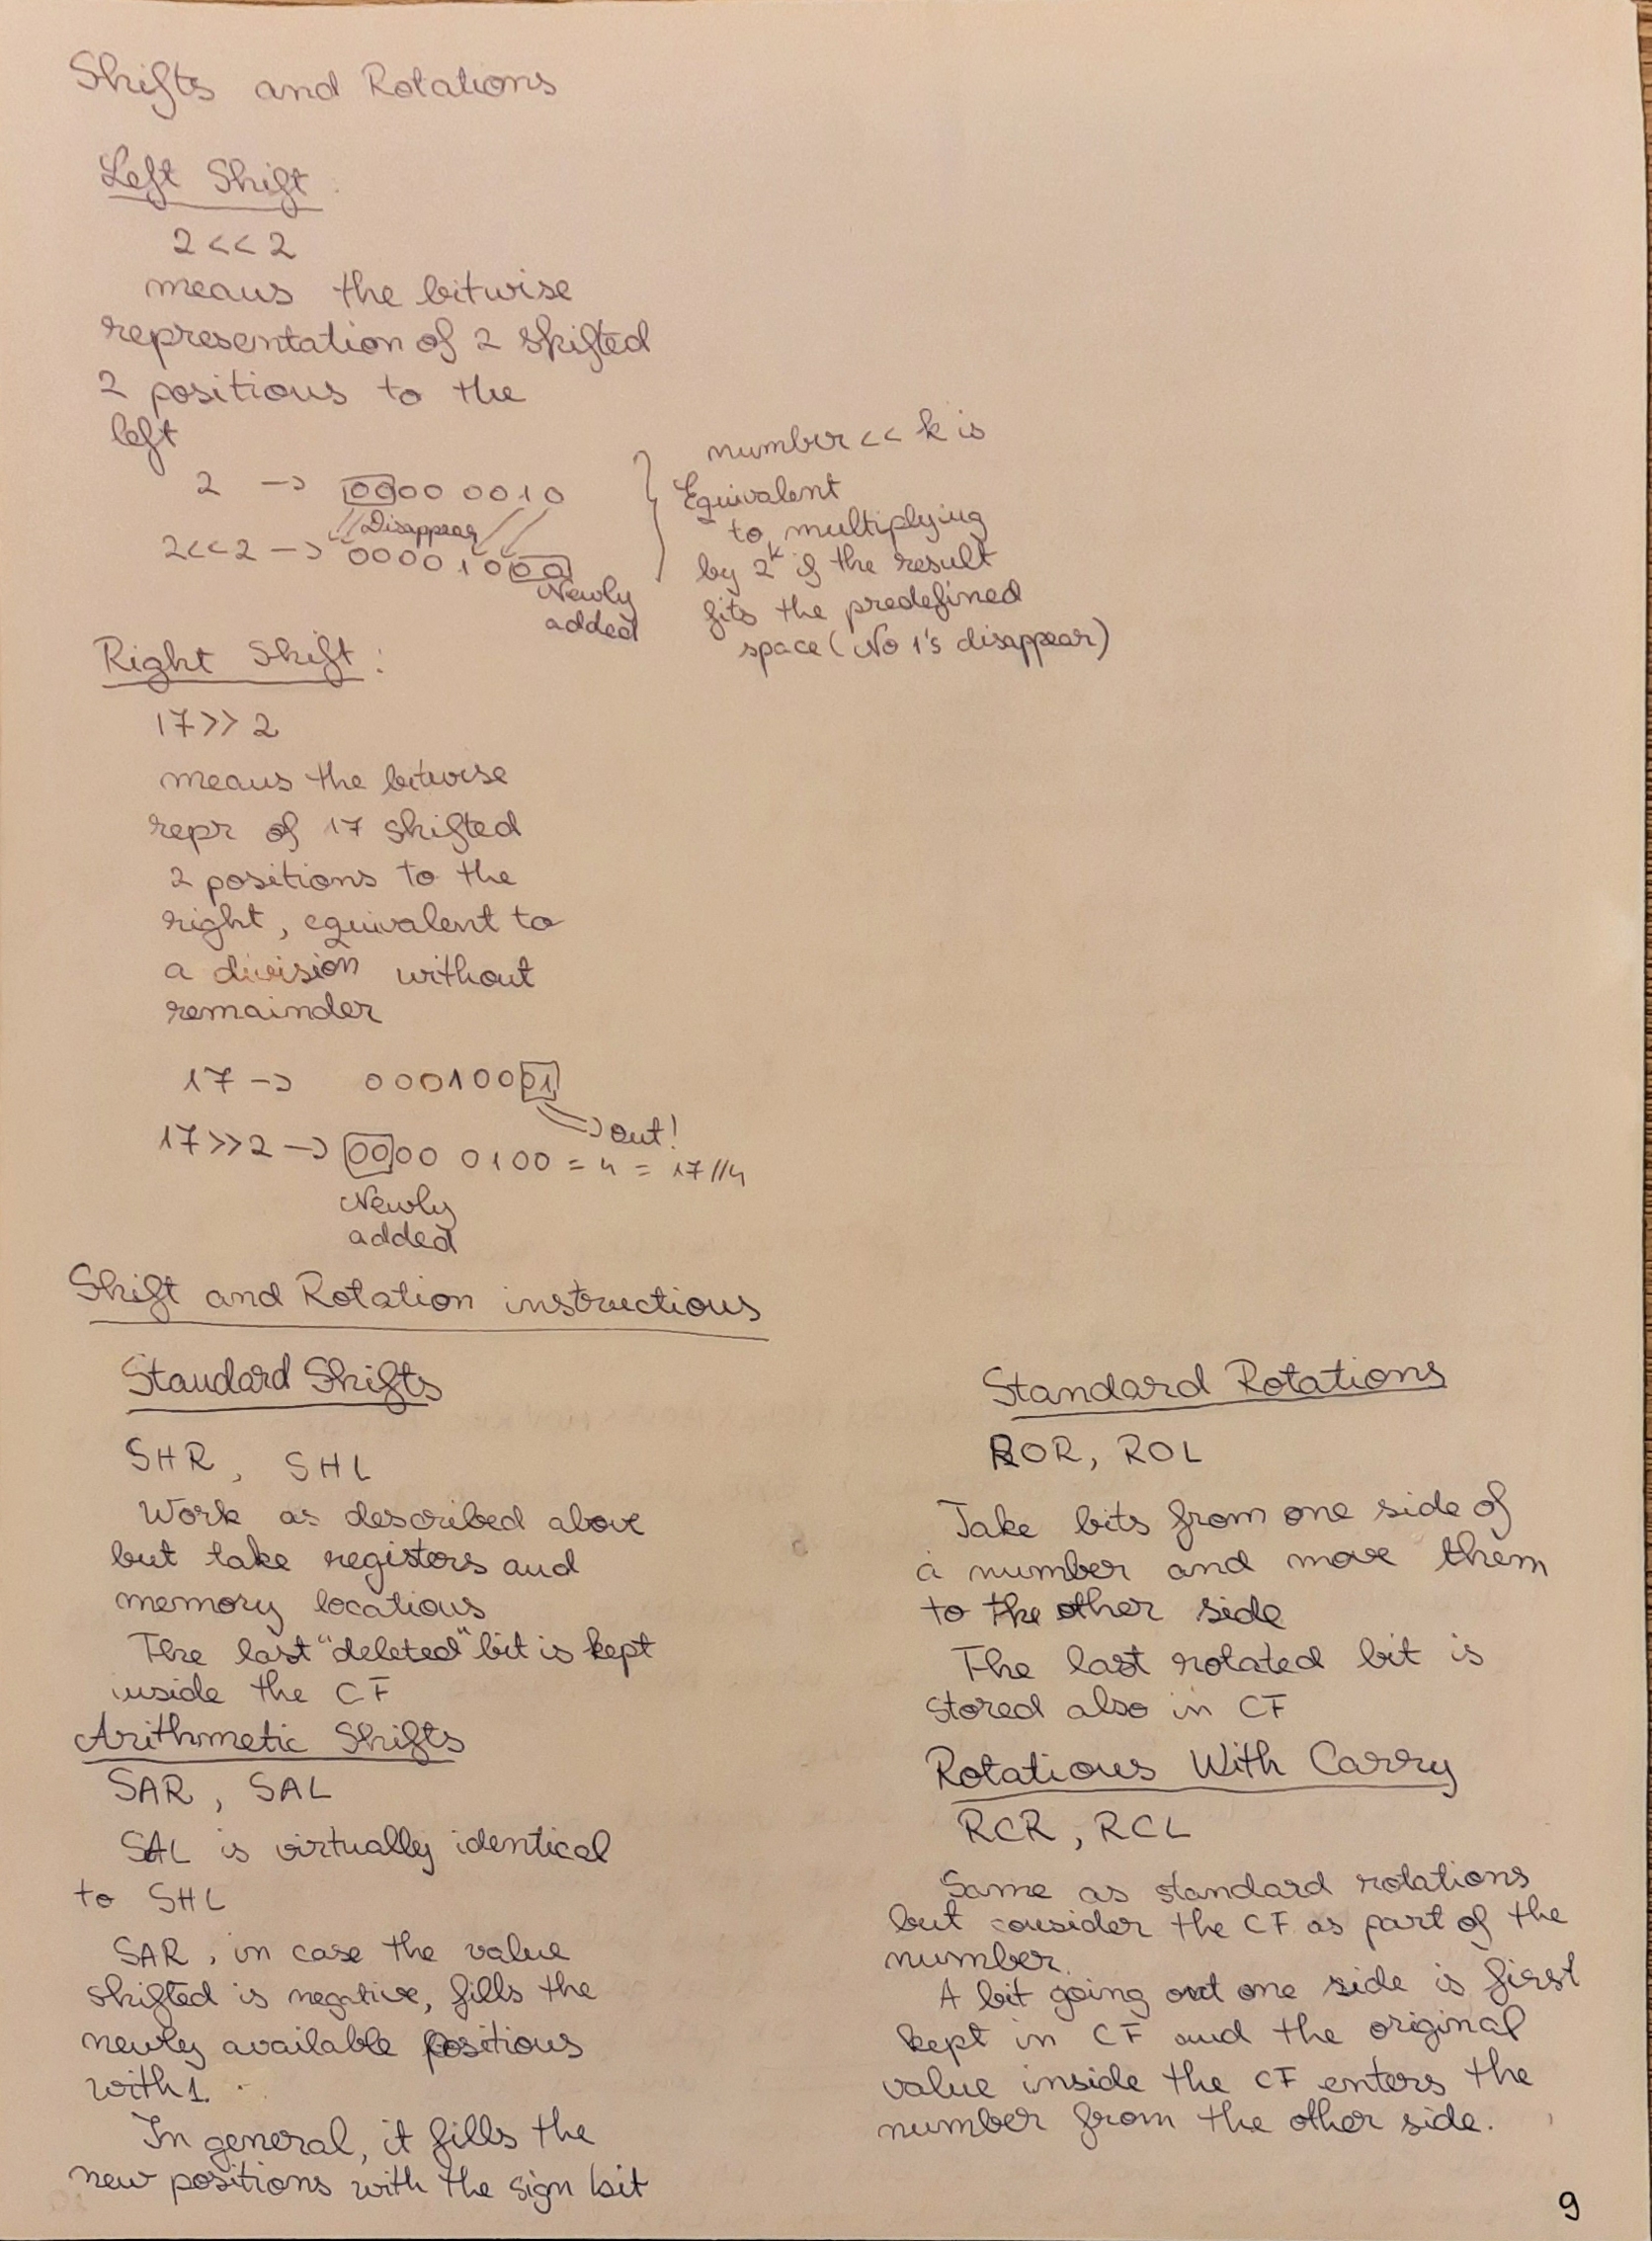 Shifts and Rotations
Left Shift:
2<<2
means the bitwise
representation of 2 shifted
2 positions to the
left
2 -> 0000 0010
Disappear
2<<2 -> 00001000
Newly
added
number << k is
Equivalent
to multiplying
by 2^k if the result
fits the predefined
space (No 1's disappear)
Right Shift:
17>>2
means the bitwise
repr of 17 shifted
2 positions to the
right, equivalent to
a division without
remainder
17 -> 00010001
out!
17>>2 -> 0000 0100 = 4 = 17//4
Newly
added
Shift and Rotation instructions
Standard Shifts
SHR, SHL
Work as described above
but take registers and
memory locations
The last "deleted" bit is kept
inside the CF
Arithmetic Shifts
SAR, SAL
SAL is virtually identical
to SHL
SAR, in case the value
shifted is negative, fills the
newly available positions
with 1.
In general, it fills the
new positions with the sign bit
Standard Rotations
ROR, ROL
Take bits from one side of
a number and move them
to the other side
The last rotated bit is
stored also in CF
Rotations With Carry
RCR, RCL
Same as standard rotations
but consider the CF as part of the
number.
A bit going out one side is first
kept in CF and the original
value inside the CF enters the
number from the other side.
9